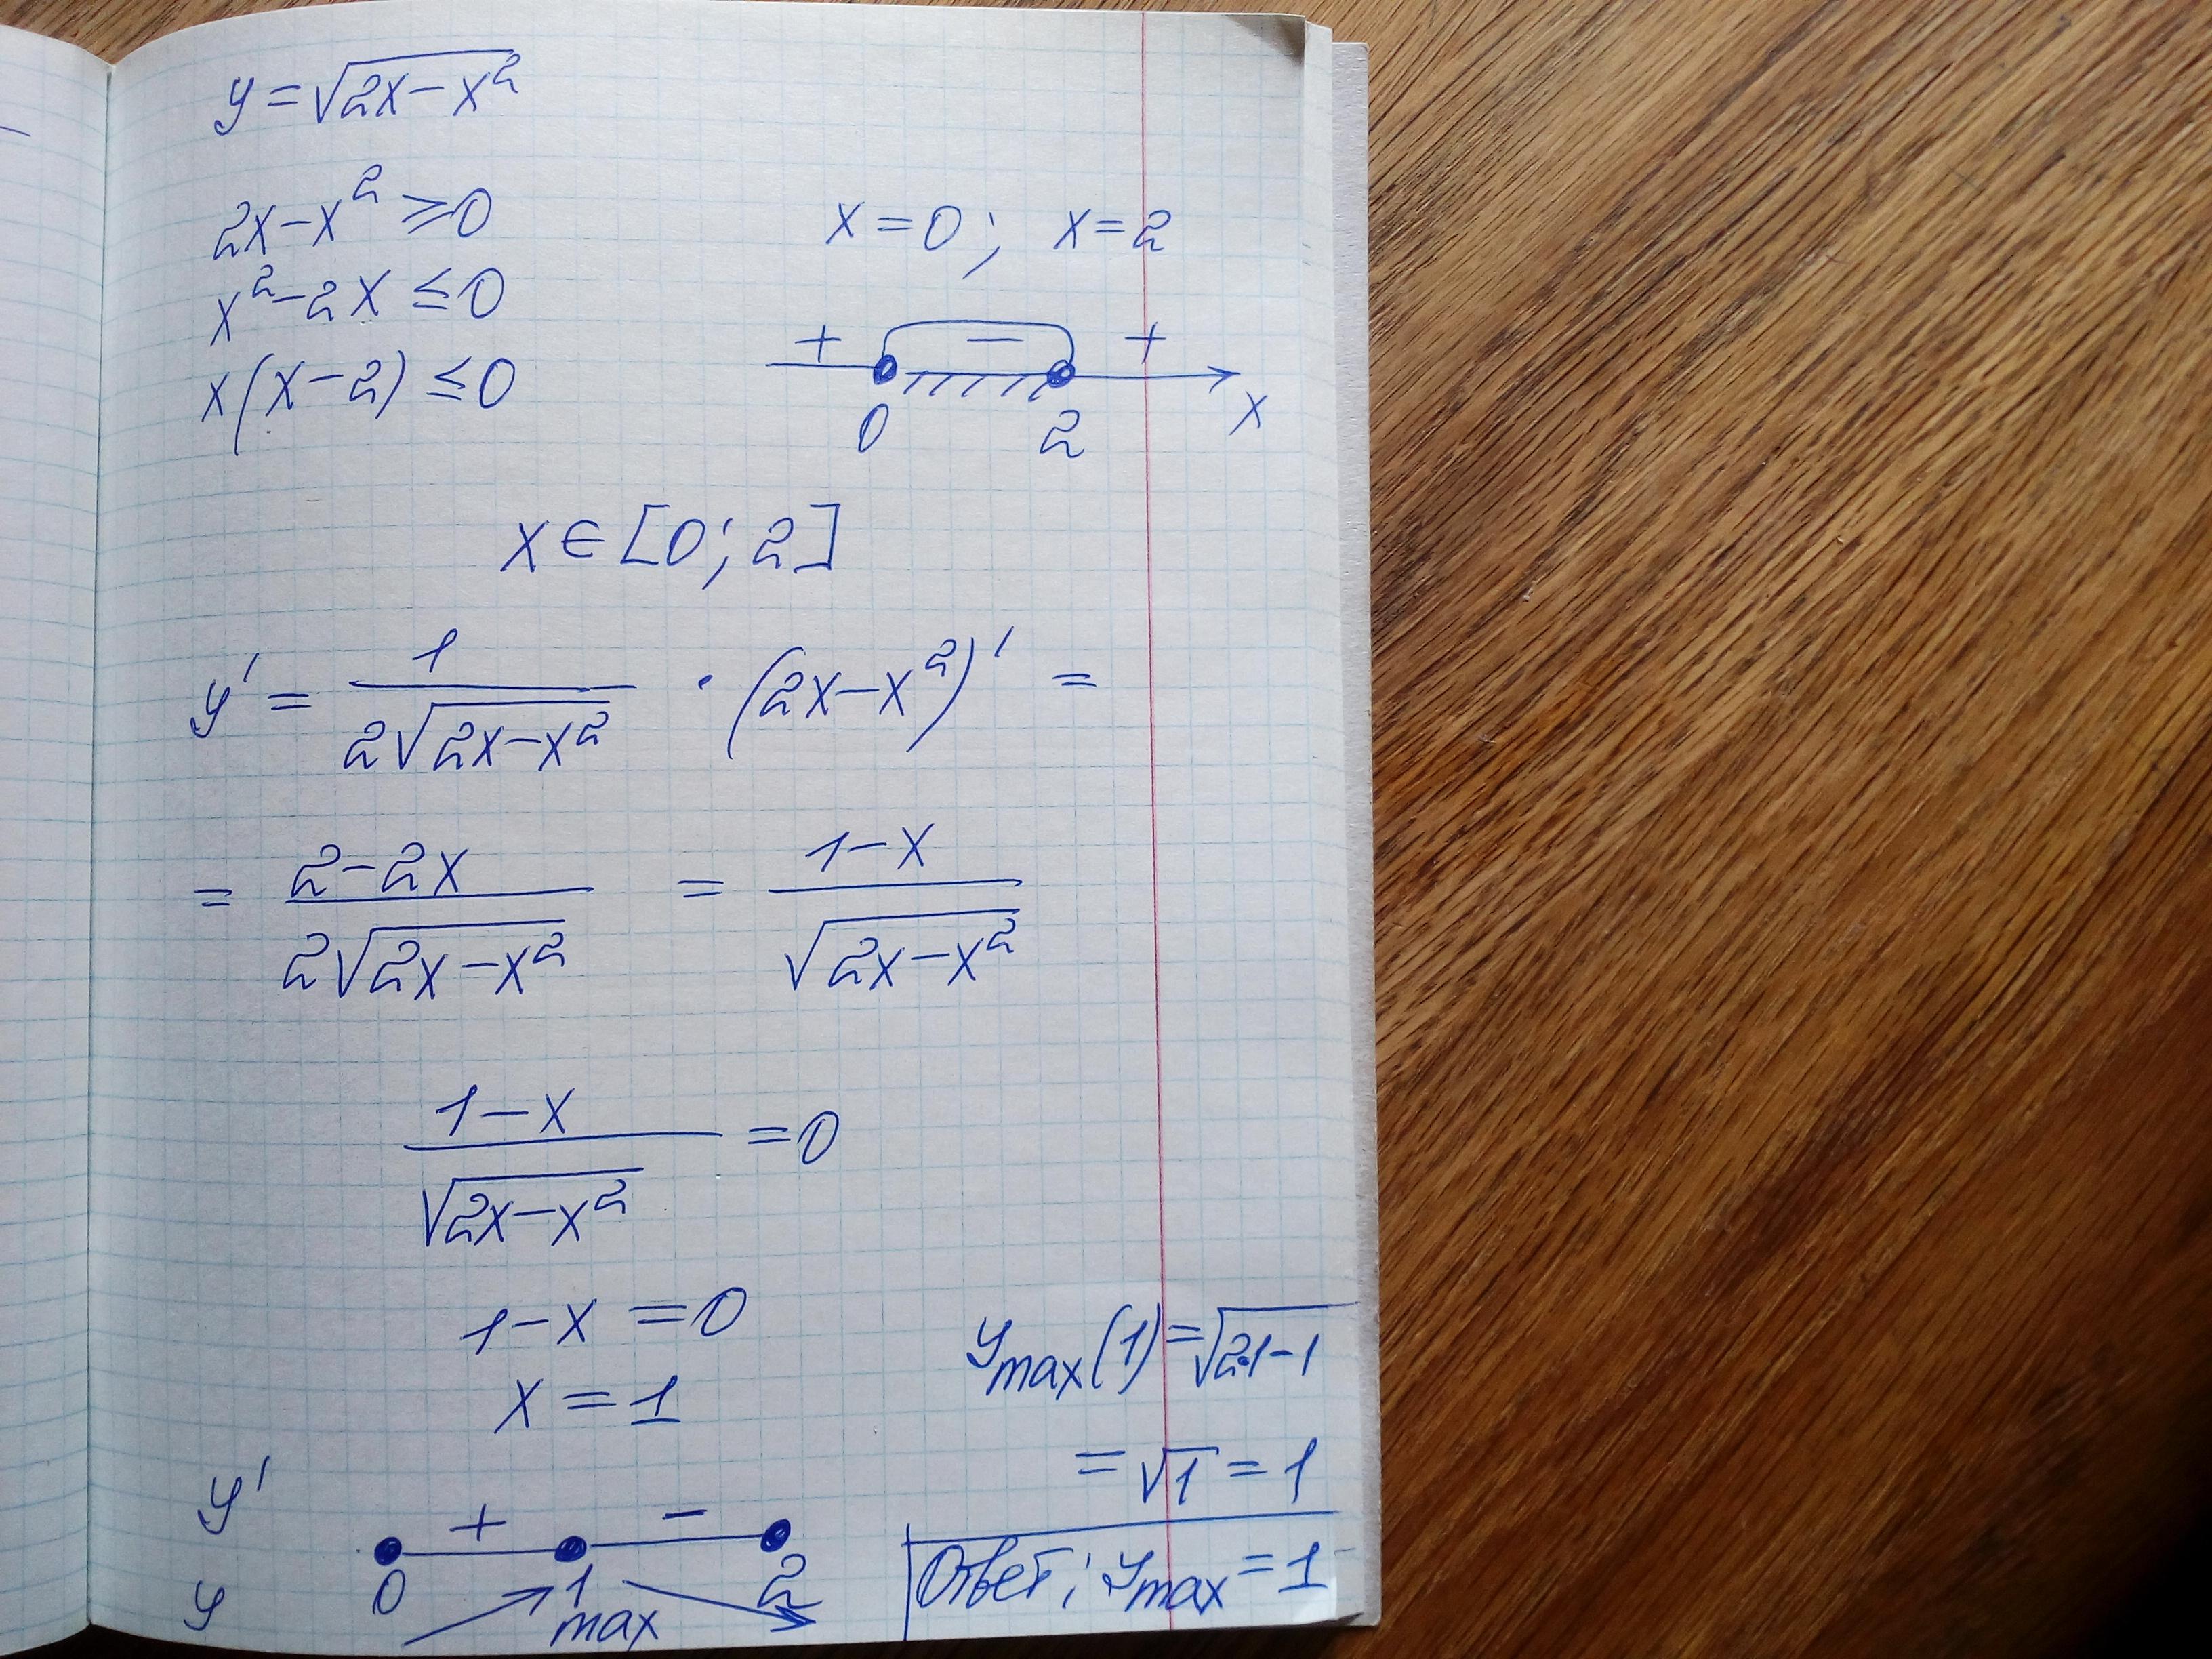 y = √(2x − x²)
2x − x² ≥ 0
x² − 2x ≤ 0
x(x − 2) ≤ 0
x = 0; x = 2
+ − +
0 2 x
x ∈ [0; 2]
y' = 1/(2√(2x − x²)) · (2x − x²)' =
= (2 − 2x)/(2√(2x − x²)) = (1 − x)/√(2x − x²)
(1 − x)/√(2x − x²) = 0
1 − x = 0
x = 1
y' + −
0 1 2
y max
y_max(1) = √(2·1 − 1)
= √1 = 1
Ответ; y_max = 1